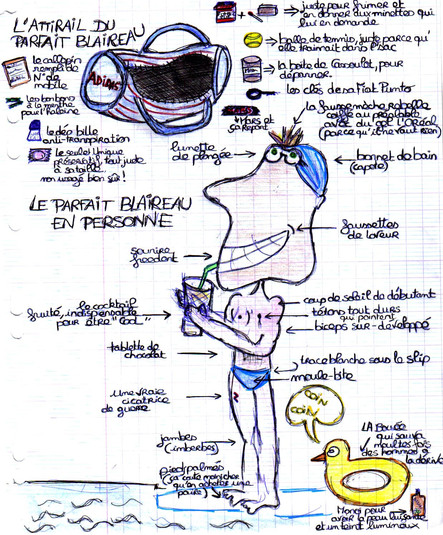 L'ATTIRAIL DU
PARFAIT BLAIREAU
juste pour frimer et
en donner aux minettes qui
lui en demande
balle de tennis, juste parce qu'
elle trainait dans l'sac
la boite de Cassoulet, pour
dépanner.
les clés de sa Fiat Punto
Mars et
ça repart
ADIDAS
le calepin
rempli de
N° de
mobile
les bonbons
à la menthe
pour l'haleine
le déo bille
anti-transpiration
le seul et unique
préservatif, tout juste
à sa taille...
non usagé bien sûr!
la fausse mèche rebelle
collée au préalable
avec du gel L'Oréal
(parce qu'il le vaut bien)
lunette
de plongée
bonnet de bain
(capote)
LE PARFAIT BLAIREAU
EN PERSONNE
faussettes
de loveur
sourire
freedent
le cocktail
fruité, indispensable
pour être "cool"
coup de soleil de débutant
tétons tout durs
qui pointent
biceps sur-développé
tablette de
chocolat
trace blanche sous le slip
moule-bite
une vraie
cicatrice
de guerre
COIN
COIN
LA Bouée
qui sauva
moultes fois
des hommes à
la dérive
jambes
(imberbes)
pieds palmés
(sa coûte moins cher
qu'en acheter une
paire)
Monoï pour
avoir la peau luisante
et un teint lumineux